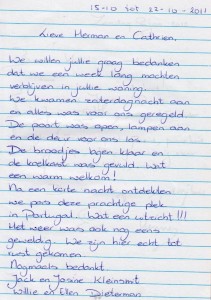 15-10 tot 22-10-2011
Lieve Herman en Cathrien,
We willen jullie graag bedanken
dat we een week lang mochten
verblijven in jullie woning.
We kwamen zaterdagnacht aan
en alles was voor ons geregeld
De poort was open, lampen aan
en de deur voor ons los.
De broodjes lagen klaar en
de koelkast was gevuld. Wat
een warm welkom!
Na een korte nacht ontdekten
we pas deze prachtige plek
in Portugal. Wat een uitzicht!!!
Het weer was ook nog eens
geweldig. We zijn hier echt tot
rust gekomen.
Nogmaals bedankt
Jack en Josine Kleinsmit
Willie en Ellen Dieterman